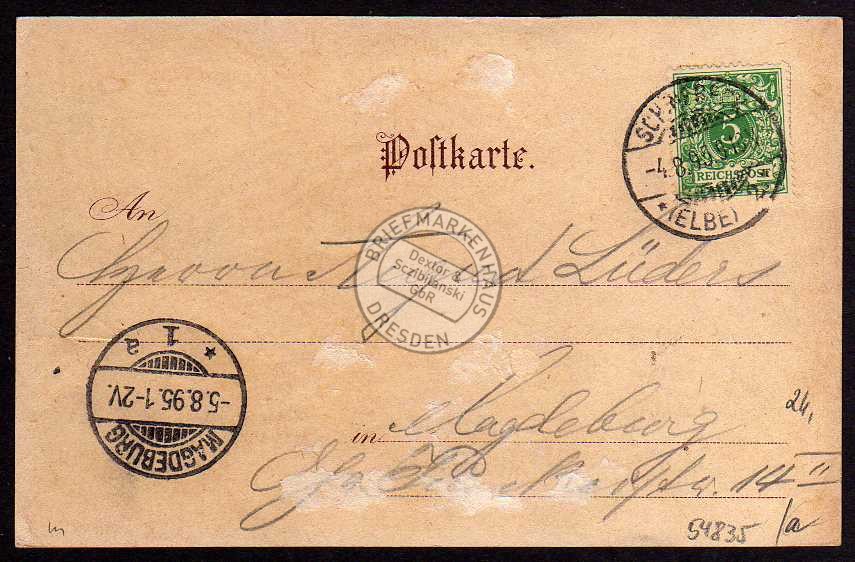 Postkarte.
REICHSPOST
5
-4.8.95
*(ELBE)
An
Herrn Lüders
BRIEFMARKENHAUS
Dextor &
Sczibilanski
GbR
DRESDEN
* 1 a
-5.8.95.1-2V.
MAGDEBURG
in Magdeburg
14 II
24,
54835
/a